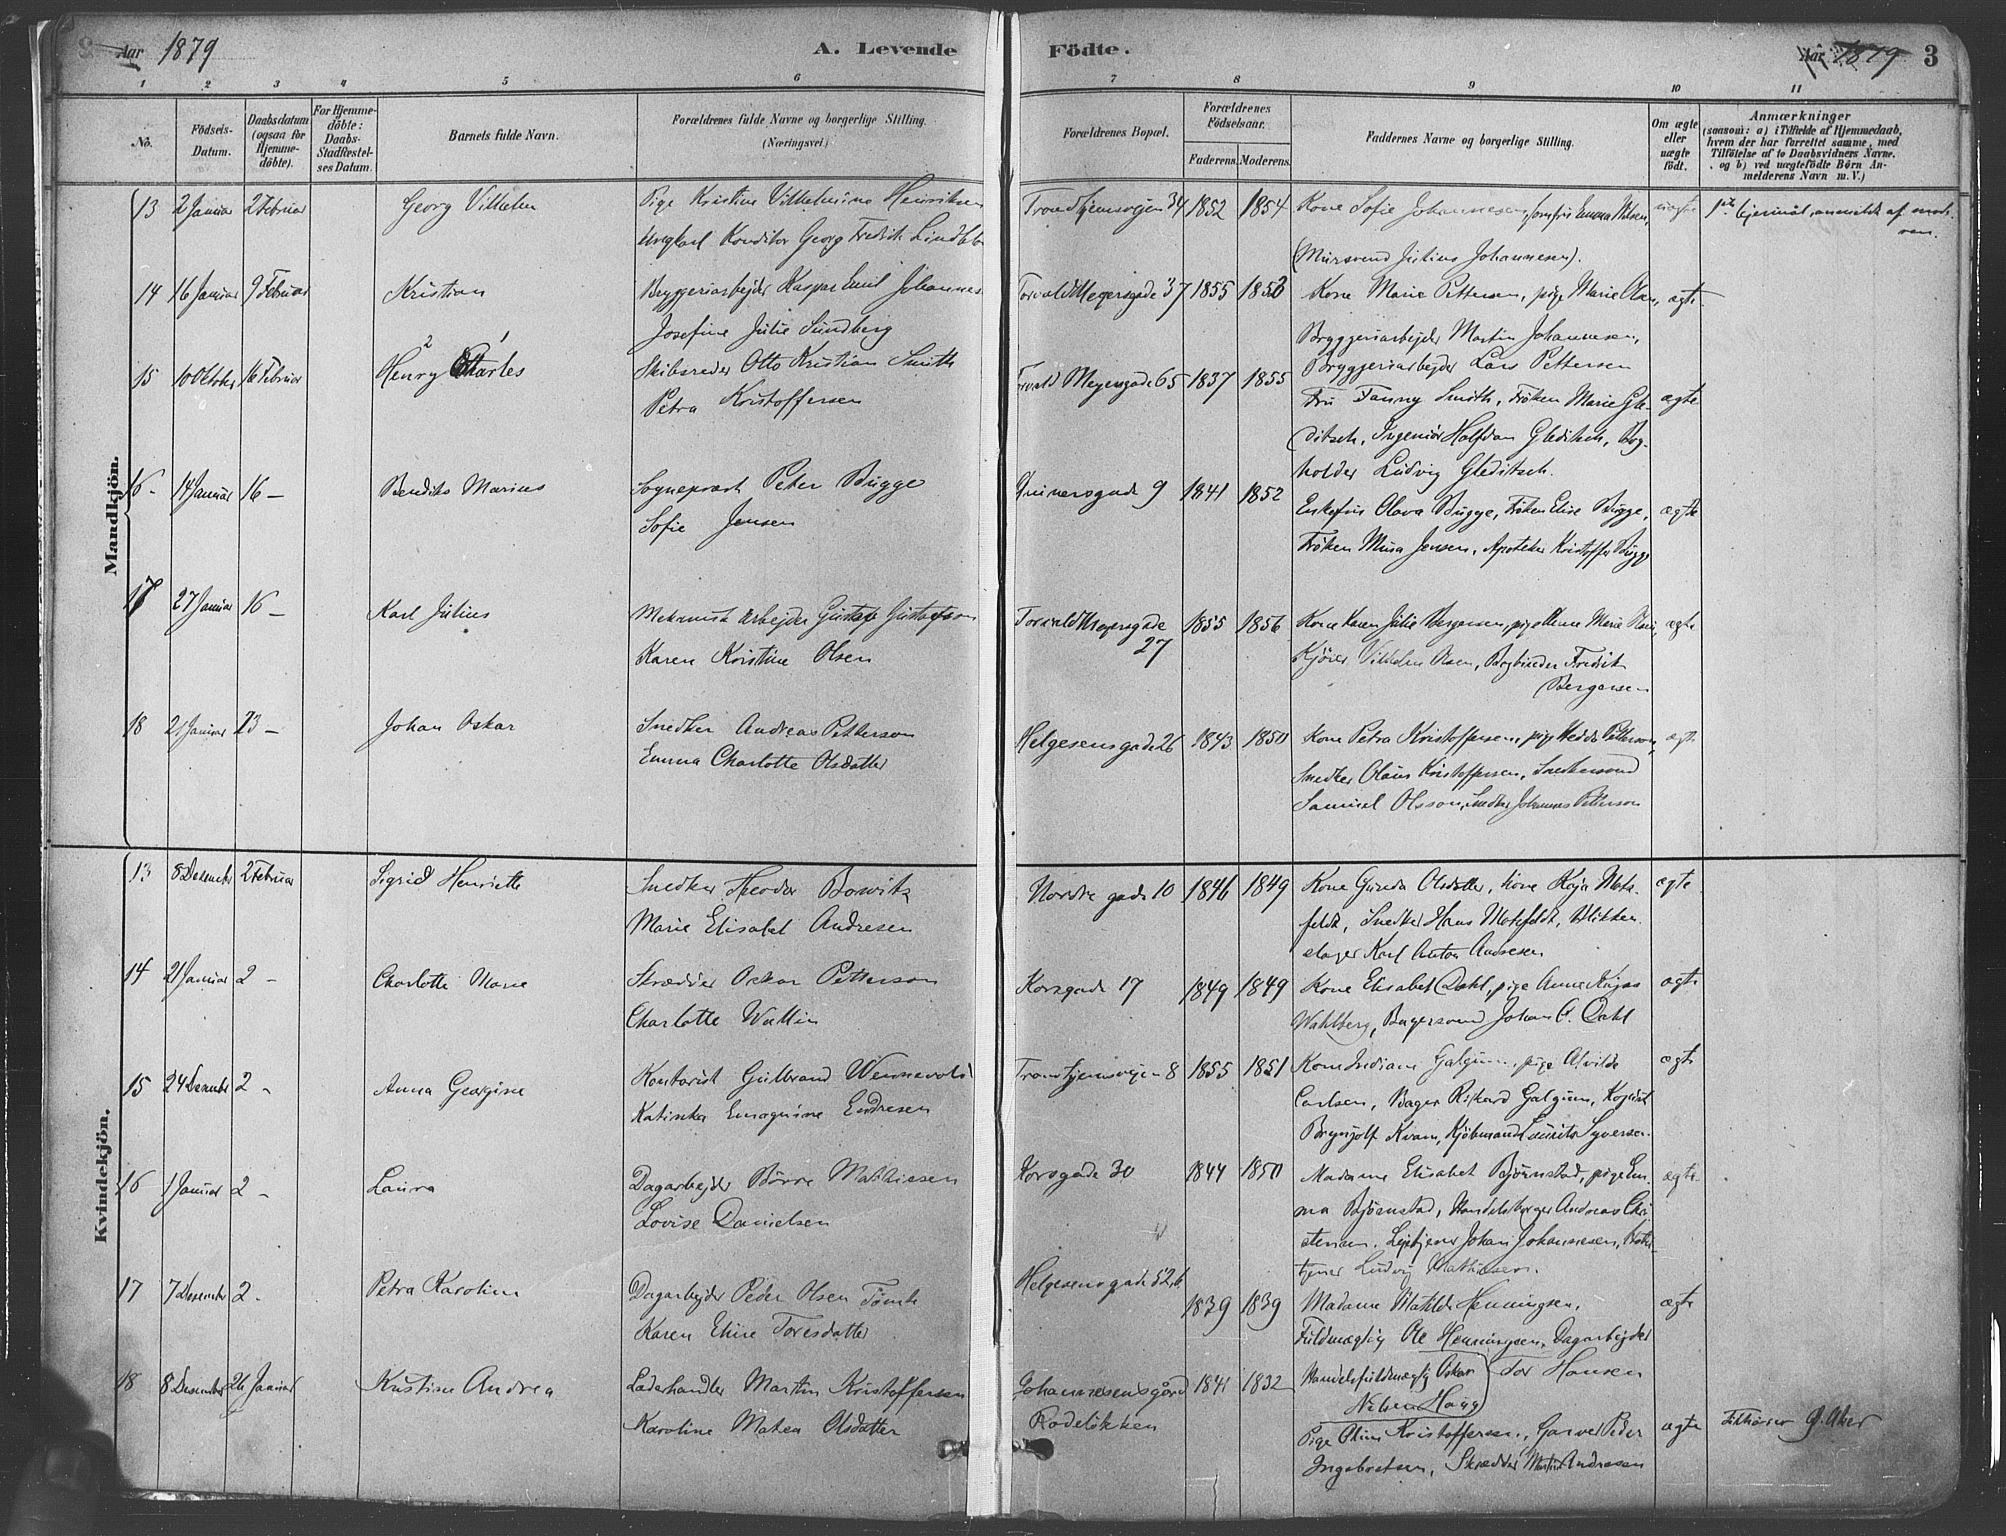 Aar 1879
A. Levende Födte.
Aar 1879 3
1 2 3 4 5 6 7 8 9 10 11
No.
Födsels-Datum.
Daabsdatum (ogsaa for Hjemme-döbte).
For Hjemme-döbte: Daabs-Stadfæstel-ses Datum.
Barnets fulde Navn.
Forældrenes fulde Navne og borgerlige Stilling. (Næringsvei.)
Forældrenes Bopæl.
Forældrenes Födselsaar.
Faderens. Moderens.
Faddernes Navne og borgerlige Stilling.
Om ægte eller uægte födt.
Anmærkninger
(saasom: a) i Tilfælde af Hjemmedaab, hvem der har forrettet samme, med Tilföielse af to Daabsvidners Navne, og b) ved uægtefödte Börn An-melderens Navn m. V.)
Mandkjön.
13 2 Januar 2 Februar Georg Vilhelm Pige Kristine Vilhelmine Henriksen Trondhjemsvejen 34 1852 1854 Kone Sofie Johannesen, Emma Nilsen, uægte anmeldt af mode-
Ungkarl Konditor Georg Fredrik ren.
(Mursvend Julius Johannesen).
14 16 Januar 9 Februar Kristian Bryggeriarbejder Kaspar Emil Johannes Torvald Meyersgade 37 1855 1853 Kone Marie Pettersen, pige Marie Olsen, ægte
Josefine Julie Sundberg Bryggeriarbejder Martin Johannesen,
Bryggeriarbejder Lars Pettersen
15 10 Oktober 16 Februar Henry Charles Skibsreder Otto Kristian Smith Torvald Meyersgade 65 1837 1855 Fru Fanny Smith, Fröken Marie Gle- ægte
Petra Kristoffersen ditsch, Ingeniör Halfdan Gleditsch, Bog-
holder Ludvig Gleditsch.
16 14 Januar 16 – Bendiks Marius Sogneprest Peter Bugge 9 1841 1852 Enkefru Olava Bugge, Fröken Elise Bugge, ægte
Sofie Jensen Fröken Mina Jensen, Apoteker Kristoffer Bugge
17 27 Januar 16 – Karl Julius Mekanisk Arbejder Gustaf Gustafson Torvald Meyersgade 27 1855 1856 Kone Karen Julie Bergersen, pige Marie ægte
Karen Kristine Olsen Kjörer Vilhelm Olsen, Bogbinder Fredrik
Bergersen
18 21 Januar 23 – Johan Oskar Snedker Andreas Petterson Helgesensgade 26 1843 1850 Kone Petra Kristoffersen, pige Hedda Petterson, ægte
Emma Charlotte Olsdatter Snedker Olaus Kristoffersen, Snedkersvend
Samuel Olsson, Snedker Johannes Petterson
Kvindekjön.
13 8 Desember 2 Februar Sigrid Henriette Snedker Theodor Borwitz Nordre gade 10 1846 1849 Kone Gunda Olsdatter, kone Kaja Mots- ægte
Marie Elisabet Andresen feldt, Snedker Hans Motsfeldt, Blikken-
slager Karl Anton Andresen
14 21 Januar 2 – Charlotte Marie Skrædder Oskar Petterson Korsgade 17 1849 1849 Kone Elisabet Dahl, pige Anna ægte
Charlotte Wallin Wahlberg, Bagersvend Johan A. Dahl
15 24 Desember 2 – Anna Georgine Kontorist Gulbrand Trondhjemsvejen 8 1855 1851 Kone Galgum, pige Alvilde ægte
Katinka Endresen Carlsen, Bager Rikard Galgum, Kopist
Brynjolf Kvam, Kjöbmand Laurits Syversen.
16 1 Januar 2 – Laura Dagarbejder Börre Mathisen Korsgade 30 1844 1850 Madame Elisabet Björnstad, pige Em- ægte
Lovise Danielsen ma Björnstad, Handelsborger Andreas Chri-
stensen. Johan Johannesen,
tjener Ludvig Mathisen.
17 7 Desember 2 – Petra Karoline Dagarbejder Peder Olsen Helgesensgade 52 b 1839 1839 Madame Matilde Henningsen, ægte
Karen Eline Toresdatter Fuldmægtig Ole Henningsen, Dagarbejder
Tor Hansen
18 8 Desember 26 Januar Kristine Andrea Læderhandler Martin Kristoffersen Johannesensgård 1841 1832 Handelsfuldmægtig Oskar
Karoline Matea Olsdatter Rodelökken Nilsen Haug
Pige Kristoffersen, Garver Peder ægte Tilhörer Ö. Aker
Ingebretsen, Skrædder Martin Andresen